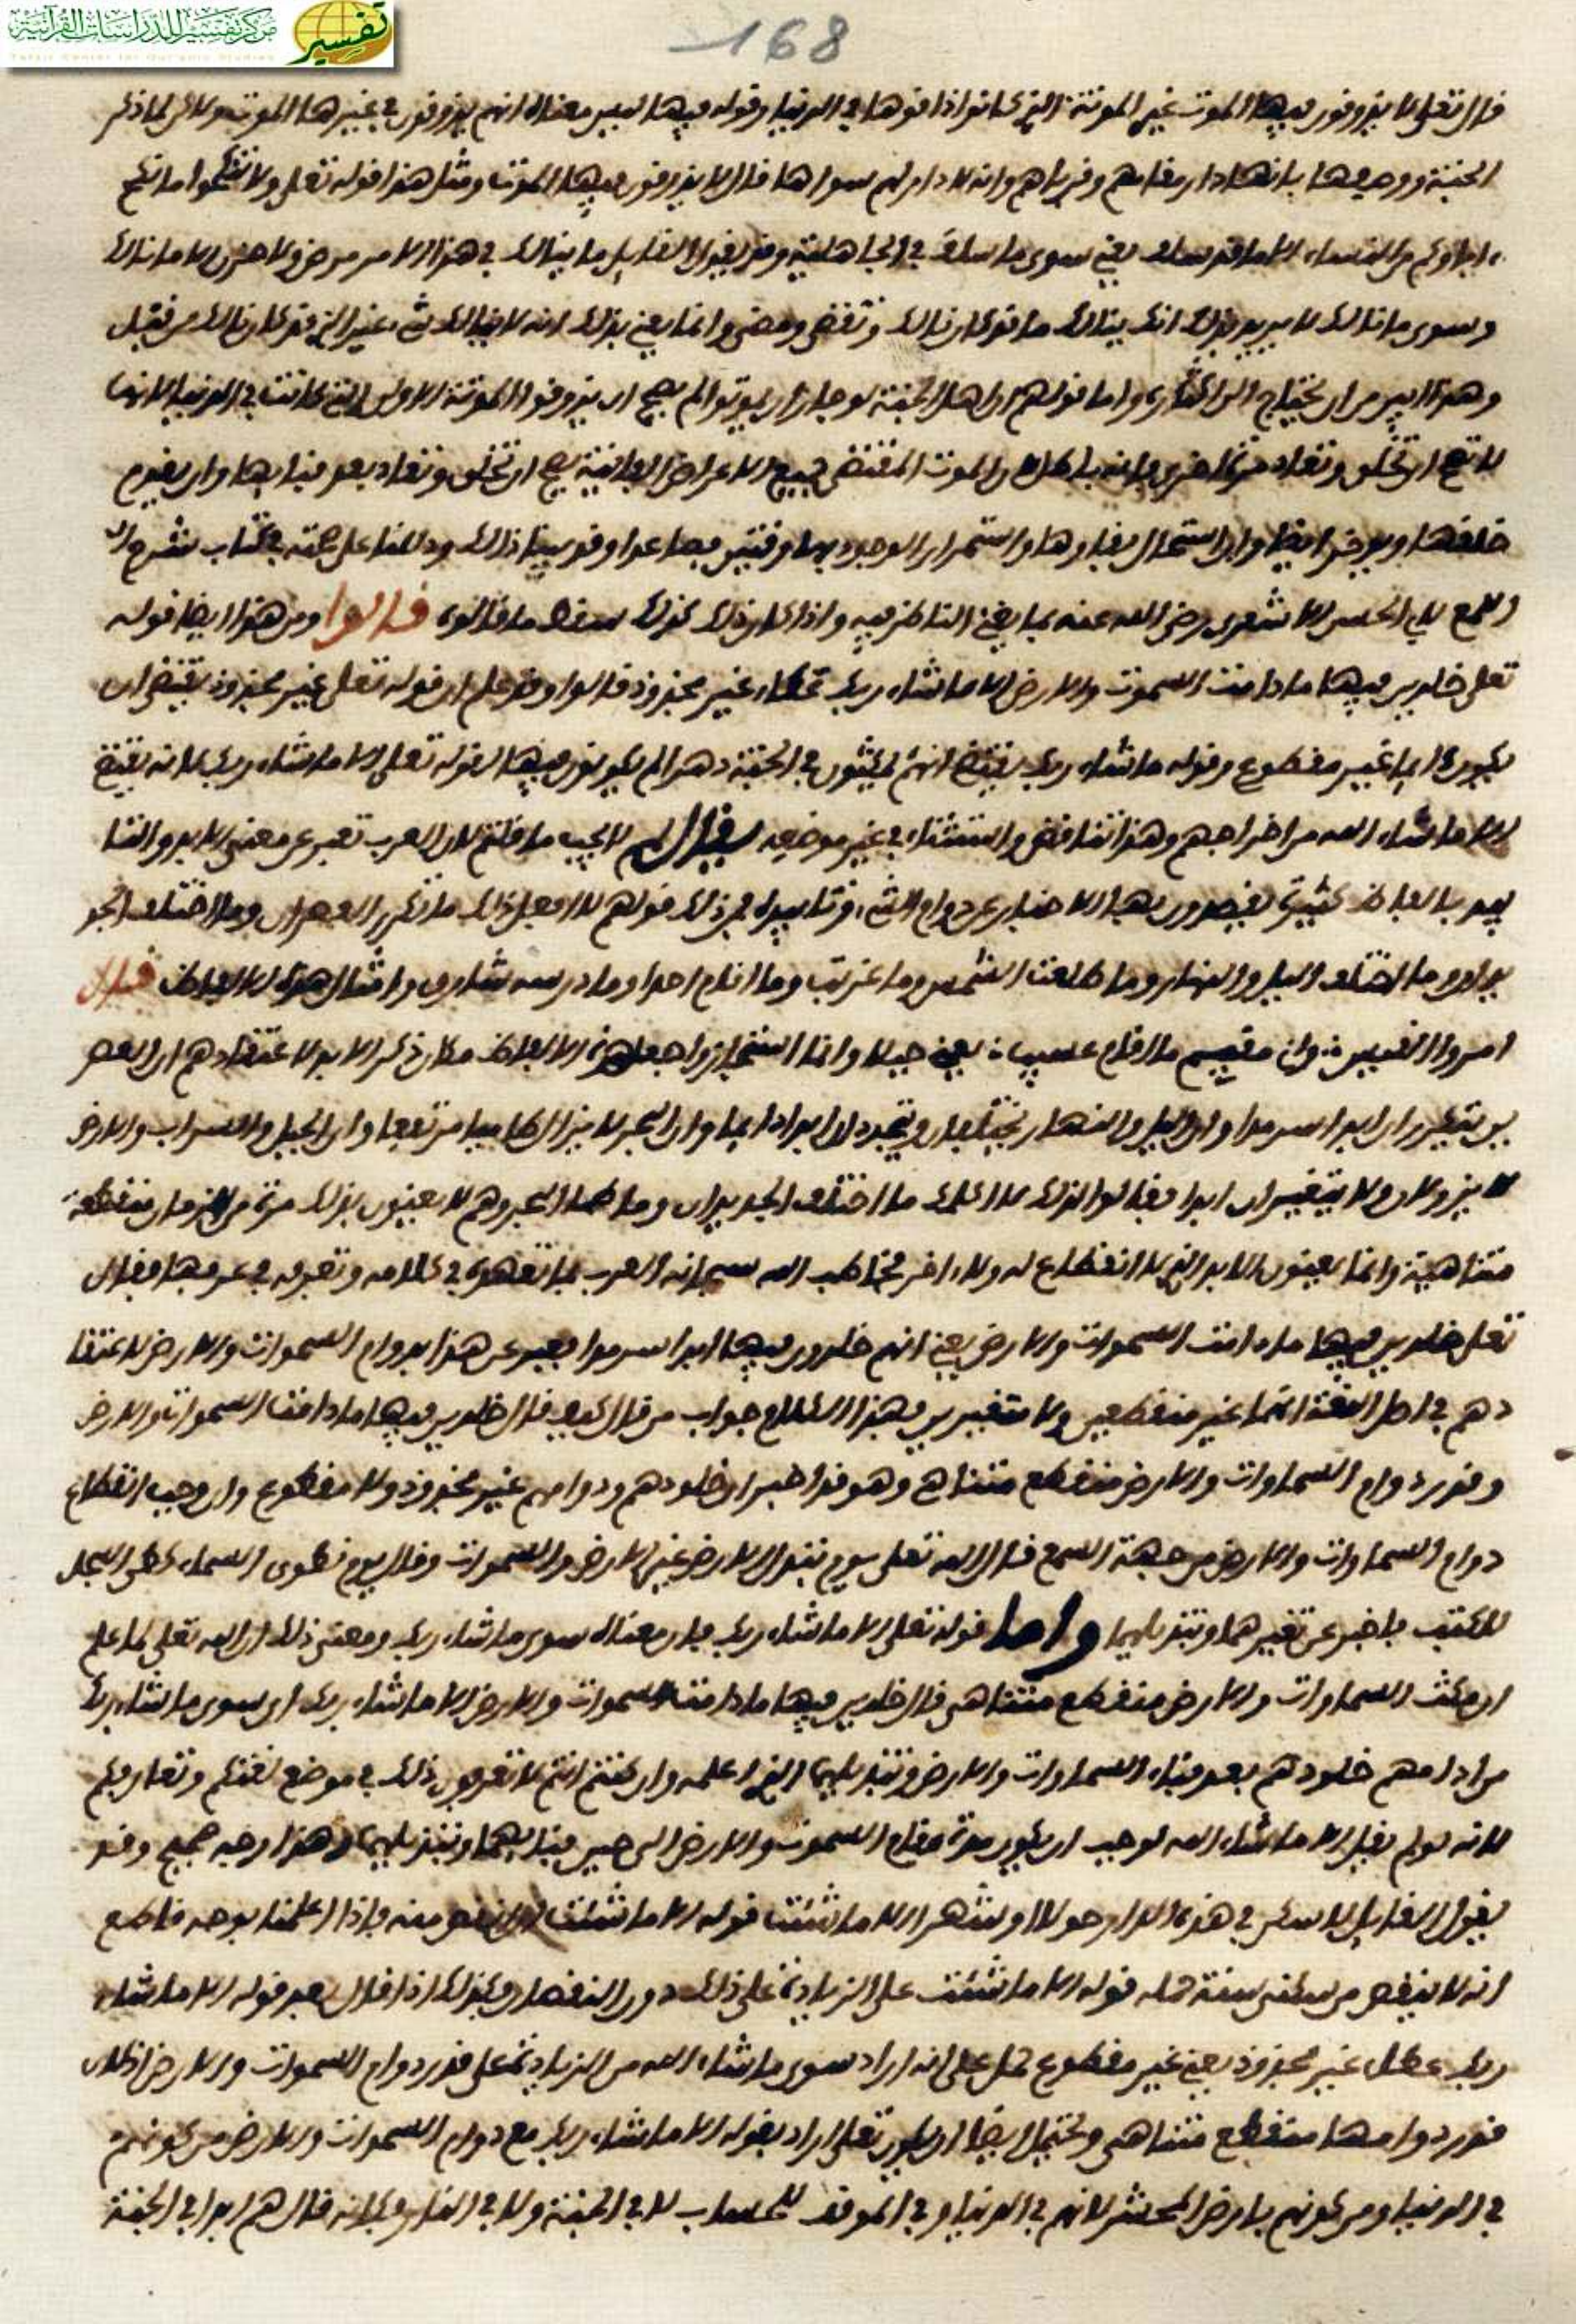 مركز تفسير للدراسات القرآنية
تفسير
Tafsir Center for Qur'anic Studies
168
قال تعلى لا يذوقون فيها الموت غير الموتة التي كانوا ذاقوها في الدنيا وقوله فيها ليس معناه انهم يذوقون في غيرها الموت ولاكن لما ذكر
الجنة ووصفها بانها دار مقامهم وقرارهم وانه لا دار لهم سواها قال لا يذوقون فيها الموت ومثل هذا قوله تعلى ولا تنكحوا ما نكح
ءاباوكم من النساء الا ما قد سلف يعني سوى ما سلف في الجاهلية وقد يقول القايل ما ينالك في هذا الامر مرض ولا حزن الا ما نالك
وسوى ما نالك لا يريد بذلك انك ينالك ما قد كان نالك وتقضى ومضى وانما يعني بذلك انه لا ينالك شيء غير الذي قد كان نالك من قبل
وهذا ابين من ان يحتاج الى اكثار واما قولهم ان اهل الجنة لو جاز ان يموتوا لم يصح ان يذوقوا الموتة الاولى التي كانت في الدنيا لانها
لا تصح ان تخلق وتعاد مرة اخرى فانه باطل لان الموت المقتضى جميع الاعراض الفانية يصح ان تخلق وتعاد بعد فنايها وان يقوم
خلقها ويوجد ايضا وان استحال بقاوها واستمرار الوجود بها وقتين فصاعدا وقد بينا ذلك ودللنا على صحته في كتاب شرح ال
لمع لابي الحسن الاشعري رضي الله عنه بما يغني الناظر فيه واذا كان ذلك كذلك سقط ما قالوه قالوا ومن هذا ايضا قوله
تعلى خلدين فيها ما دامت السموت والارض الا ما شاء ربك عطاء غير مجذوذ قالوا وقد علم ان قوله تعلى غير مجذوذ يقتضي ان
يكون دايما غير مقطوع وقوله ما شاء ربك يقتضي انهم يمكثون في الجنة دهرا لم يكونون فيها لقوله تعلى الا ما شاء ربك لانه يقتضي
الا ما شاء الله من اخراجهم وهذا تناقض واستثناء في غير موضعه يقال لهم لا يجب ما قلتم لان العرب تعبر عن معنى الابد والتا
بيد بالفاظ كثيرة يقصدون بها الاخبار عن دوام الشيء وتابيده في ذلك قولهم لا افعل ذلك ما تكرر العصران وما اختلف الجد
يدان وما اختلف اليل والنهار وما طلعت الشمس وما غربت وما اقام احد وما در شارق وامثال هذه الالفاظ قال
امرؤ القيس واني مقيم ما اقام عسيب يعني جبلا وانما استجازوا جعل هذه الالفاظ مكان ذكر الابد لاعتقادهم ان العصر
ين يتكرران ابدا سرمدا وان اليل والنهار يختلفان ويتجددان ابدا دايما وان البحر لا يزال طاميا مرتفعا وان الجبل والسراب والارض
لا يزولان ولا يتغيران ابدا فقالوا لذلك لا اكلمك ما اختلف الجديدان وما طما البحر وهم لا يعنون بذلك مدة من الزمان منقطعة
متناهية وانما يعنون الابد الذي لا انقطاع له ولا ءاخر فخاطب الله سبحانه العرب بما تفهمه في كلامه وتعرفه في عرفها فقال
تعلى خلدين فيها ما دامت السموات والارض يعني انهم خلدون فيها ابدا سرمدا فعبر عن هذا بدوام السموات والارض لاعتقا
دهم في اصل اللغة انهما غير منقطعين ولا متغيرين فهذا الكلام جواب من قال كيف قال خلدين فيها ما دامت السموات والارض
وقدر دوام السماوات والارض منقطع متناه وهو قد اخبر ان خلودهم ودوامهم غير مجذوذ ولا مقطوع وان وجب انقطاع
دوام السماوات والارض من جهة السمع قال الله تعلى يوم تبدل الارض غير الارض والسموات وقال يوم نطوى السماء كطي السجل
للكتب فاخبر عن تغيرهما وتبديلهما واما قوله تعلى الا ما شاء ربك فان معناه سوى ما شاء ربك ومعنى ذلك ان الله تعلى لما علم
ان مكث السماوات والارض منقطع متناهي قال خلدين فيها ما دامت السموات والارض الا ما شاء ربك اي سوى ما شاء ربك
من ادامهم خلودهم بعد فناء السماوات والارض وتبديلهما الذي اعلمه وان كنتم انتم لا تعرفون ذلك في موضع لغتكم وتعارفكم
لانه لو لم يقل الا ما شاء الله لوجب ان يكون مدة مقام السموت والارض الى حين فنايهما وتبديلهما وهذا وجه صحيح وقد
يقول القايل لاسكن في هذه الدار حولا او شهرا الا ما شئت قوله الا ما شئت النقص منه فاذا اعلمنا بوجه قاطع
انه لا ينقص من سكنى سنة حمله قوله الا ما شئت على الزيادة على ذلك دون النقصان وكذلك اذا قال بعد قوله الا ما شاء
ربك عطاء غير مجذوذ يعني غير مقطوع حمل على انه اراد سوى ما شاء الله من الزيادة على قدر دوام السموات والارض اذ كان
قدر دوامهما منقطع متناهي ويحتمل ايضا ان يكون تعلى اراد بقوله الا ما شاء ربك مع دوام السموات والارض من كونهم
في الدنيا ومن كونهم بارض المحشر لانهم في الدنيا وفي الموقف للحساب لا في الجنة ولا في النار وكانه قال هم ابدا في الجنة